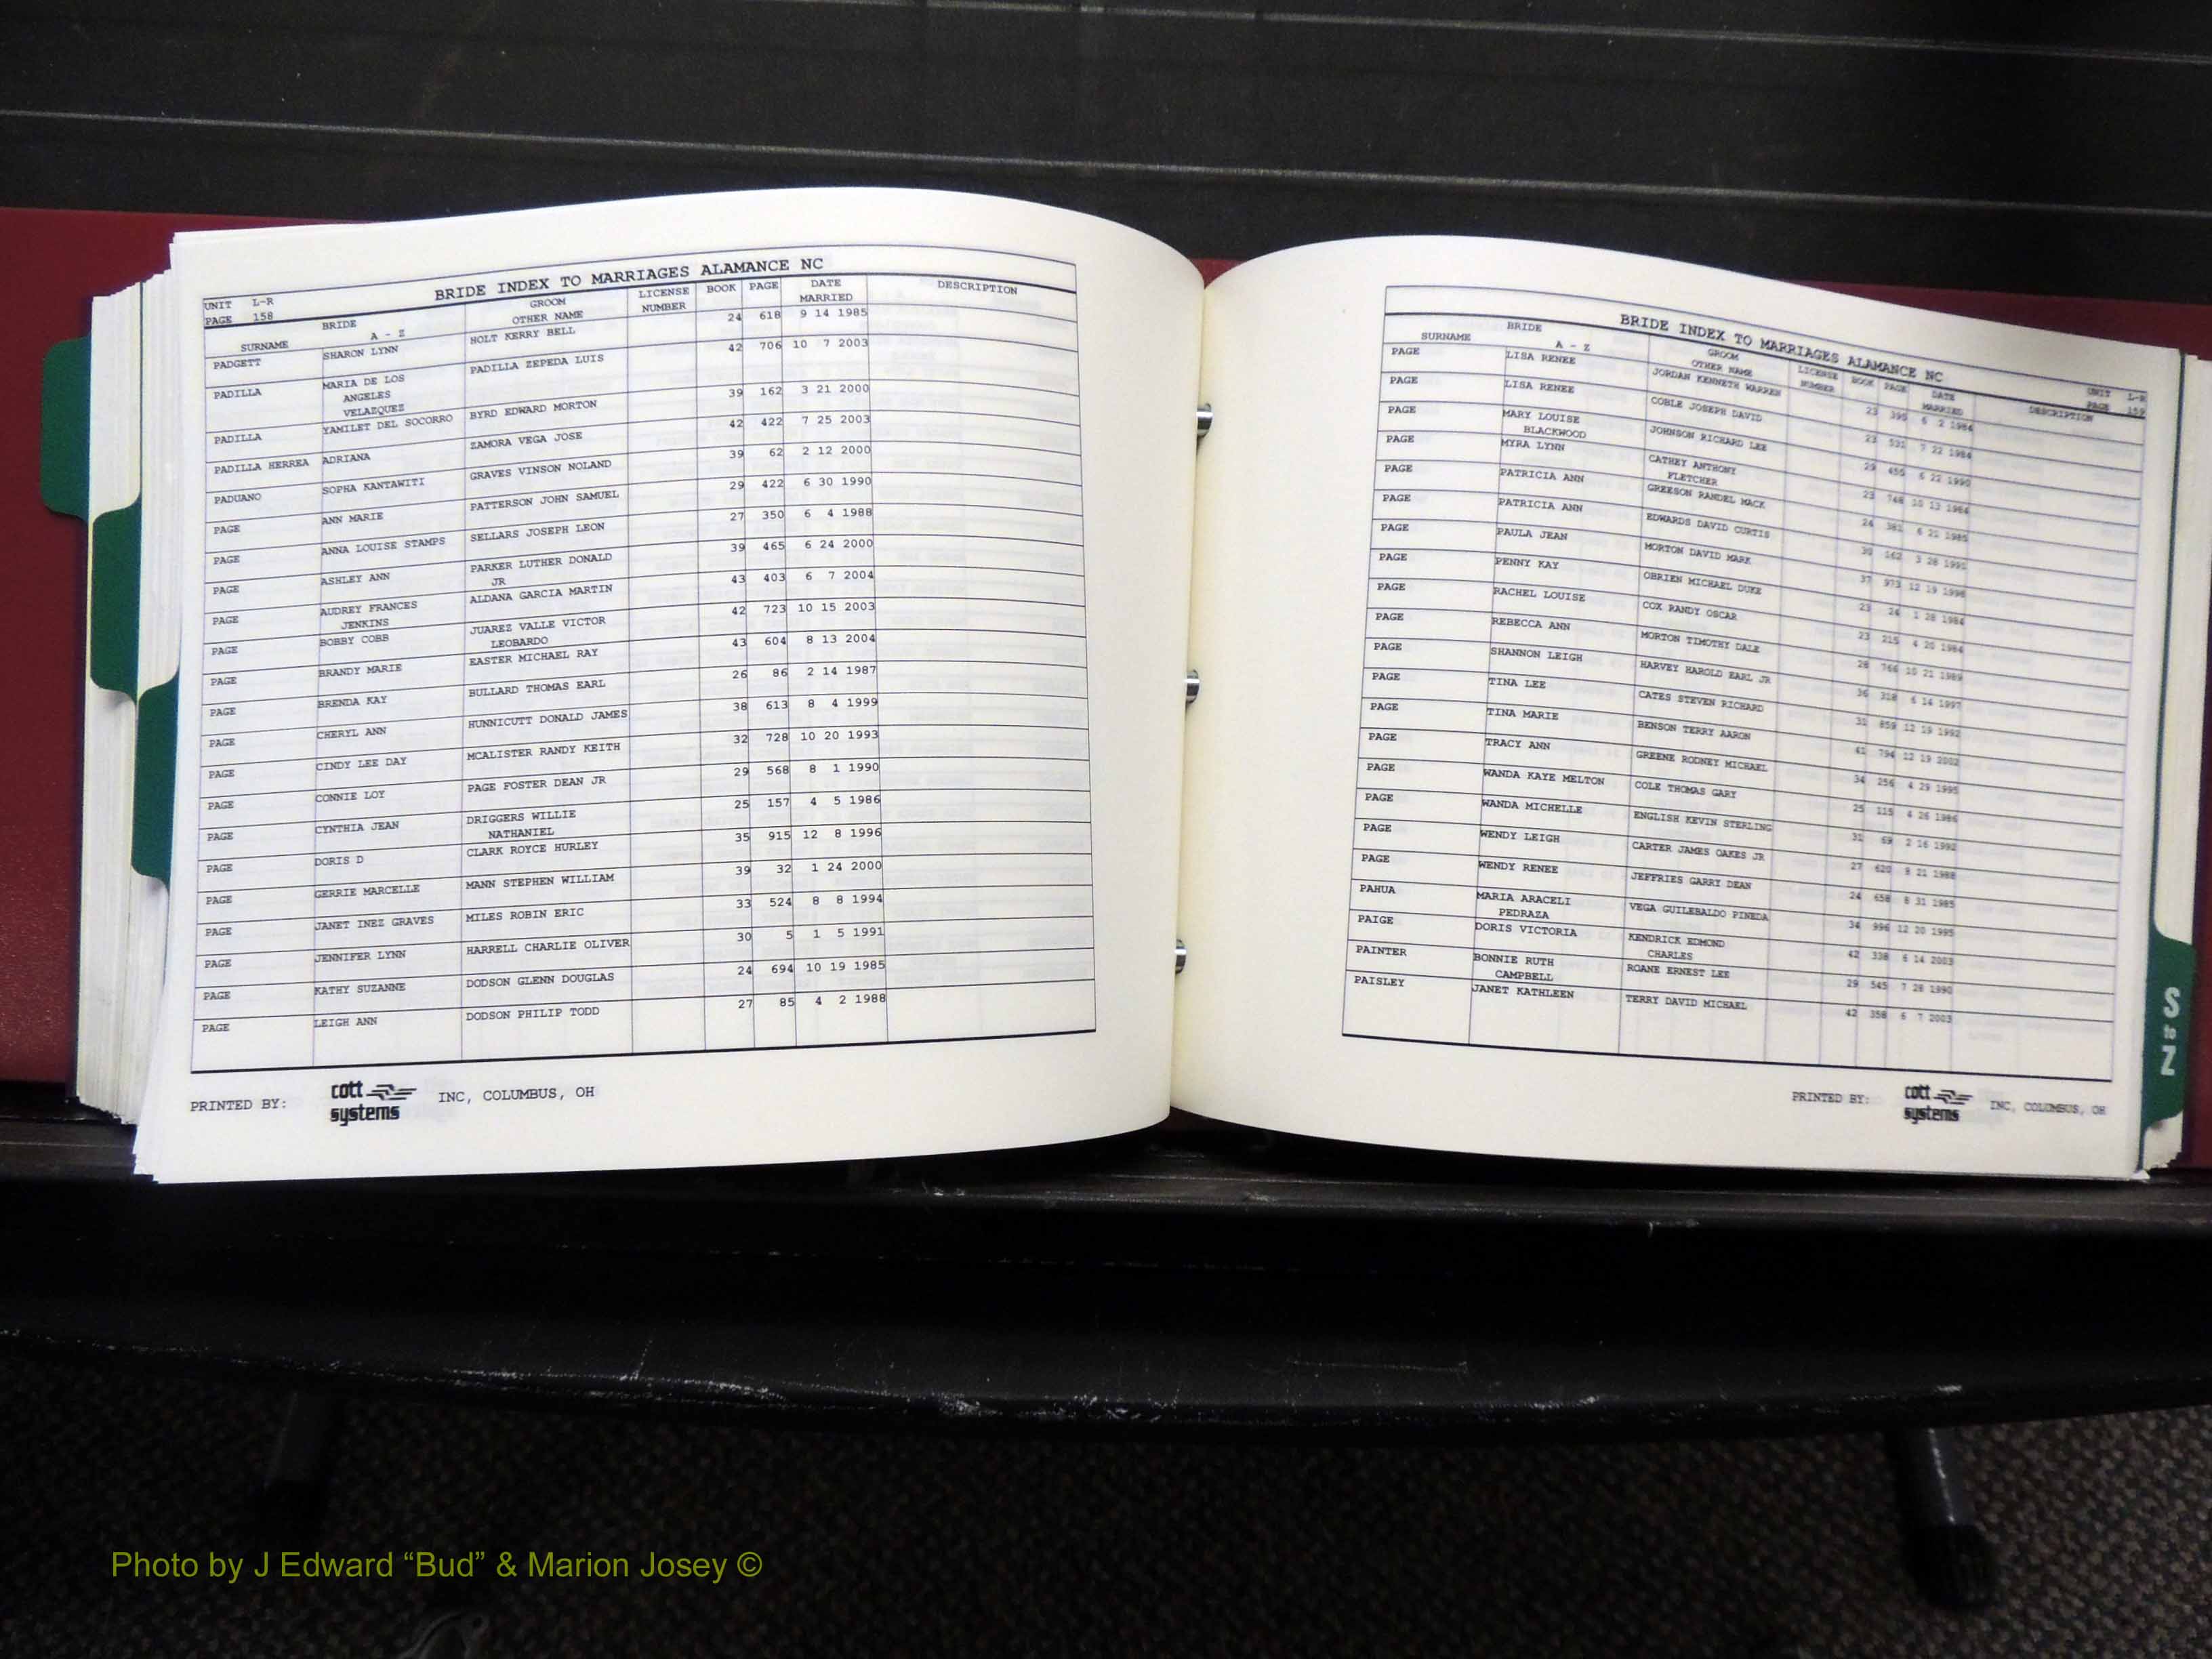 UNIT L-R
PAGE 158
BRIDE INDEX TO MARRIAGES ALAMANCE NC
BRIDE GROOM LICENSE BOOK PAGE DATE DESCRIPTION
SURNAME A - Z OTHER NAME NUMBER MARRIED
PADGETT SHARON LYNN HOLT KERRY BELL 24 618 9 14 1985
PADILLA MARIA DE LOS PADILLA ZEPEDA LUIS 42 706 10 7 2003
ANGELES
VELAZQUEZ
PADILLA YAMILET DEL SOCORRO BYRD EDWARD MORTON 39 162 3 21 2000
PADILLA HERREA ADRIANA ZAMORA VEGA JOSE 42 422 7 25 2003
PADUANO SOPHA KANTAWITI GRAVES VINSON NOLAND 39 62 2 12 2000
PAGE ANN MARIE PATTERSON JOHN SAMUEL 29 422 6 30 1990
PAGE ANNA LOUISE STAMPS SELLARS JOSEPH LEON 27 350 6 4 1988
PAGE ASHLEY ANN PARKER LUTHER DONALD 39 465 6 24 2000
JR
PAGE AUDREY FRANCES ALDANA GARCIA MARTIN 43 403 6 7 2004
JENKINS
PAGE BOBBY COBB JUAREZ VALLE VICTOR 42 723 10 15 2003
LEOBARDO
PAGE BRANDY MARIE EASTER MICHAEL RAY 43 604 8 13 2004
PAGE BRENDA KAY BULLARD THOMAS EARL 26 86 2 14 1987
PAGE CHERYL ANN HUNNICUTT DONALD JAMES 38 613 8 4 1999
PAGE CINDY LEE DAY MCALISTER RANDY KEITH 32 728 10 20 1993
PAGE CONNIE LOY PAGE FOSTER DEAN JR 29 568 8 1 1990
PAGE CYNTHIA JEAN DRIGGERS WILLIE 25 157 4 5 1986
NATHANIEL
PAGE DORIS D CLARK ROYCE HURLEY 35 915 12 8 1996
PAGE GERRIE MARCELLE MANN STEPHEN WILLIAM 39 32 1 24 2000
PAGE JANET INEZ GRAVES MILES ROBIN ERIC 33 524 8 8 1994
PAGE JENNIFER LYNN HARRELL CHARLIE OLIVER 30 5 1 5 1991
PAGE KATHY SUZANNE DODSON GLENN DOUGLAS 24 694 10 19 1985
PAGE LEIGH ANN DODSON PHILIP TODD 27 85 4 2 1988
PRINTED BY: cott systems INC, COLUMBUS, OH
BRIDE INDEX TO MARRIAGES ALAMANCE NC
UNIT L-R
PAGE 159
BRIDE GROOM LICENSE BOOK PAGE DATE DESCRIPTION
SURNAME A - Z OTHER NAME NUMBER MARRIED
PAGE LISA RENEE JORDAN KENNETH WARREN 23 395 6 2 1984
PAGE LISA RENEE COBLE JOSEPH DAVID 23 531 7 22 1984
PAGE MARY LOUISE JOHNSON RICHARD LEE 29 6 22 1990
BLACKWOOD
PAGE MYRA LYNN CATHEY ANTHONY 23 748 10 13 1984
FLETCHER
PAGE PATRICIA ANN GREESON RANDEL MACK 24 381 6 21 1985
PAGE PATRICIA ANN EDWARDS DAVID CURTIS 30 162 3 28 1991
PAGE PAULA JEAN MORTON DAVID MARK 37 973 12 19 1998
PAGE PENNY KAY OBRIEN MICHAEL DUKE 23 24 1 28 1984
PAGE RACHEL LOUISE COX RANDY OSCAR 23 215 4 20 1984
PAGE REBECCA ANN MORTON TIMOTHY DALE 28 766 10 21 1989
PAGE SHANNON LEIGH HARVEY HAROLD EARL JR 36 318 6 14 1997
PAGE TINA LEE CATES STEVEN RICHARD 31 859 12 19 1992
PAGE TINA MARIE BENSON TERRY AARON 41 794 12 19 2002
PAGE TRACY ANN GREENE RODNEY MICHAEL 34 256 4 29 1995
PAGE WANDA KAYE MELTON COLE THOMAS GARY 25 115 4 26 1986
PAGE WANDA MICHELLE ENGLISH KEVIN STERLING 31 69 2 16 1992
PAGE WENDY LEIGH CARTER JAMES OAKES JR 27 620 8 21 1988
PAGE WENDY RENEE JEFFRIES GARRY DEAN 24 658 8 31 1985
PAHUA MARIA ARACELI VEGA GUILEBALDO PINEDA 34 996 12 20 1995
PEDRAZA
PAIGE DORIS VICTORIA KENDRICK EDMOND 42 338 6 14 2003
CHARLES
PAINTER BONNIE RUTH ROANE ERNEST LEE 29 545 7 28 1990
CAMPBELL
PAISLEY JANET KATHLEEN TERRY DAVID MICHAEL 42 358 6 7 2003
PRINTED BY: cott systems INC, COLUMBUS, OH
S to Z
Photo by J Edward “Bud” & Marion Josey ©